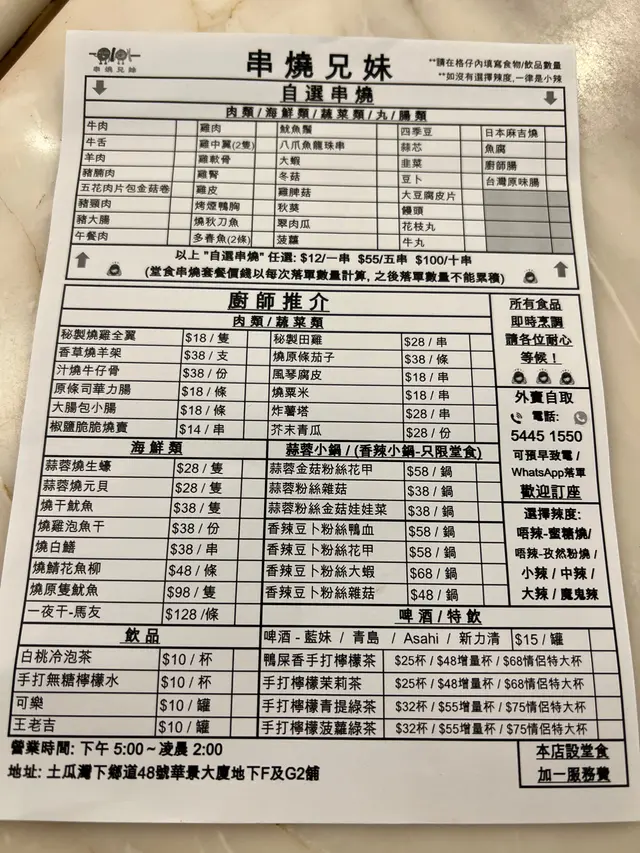 串燒兄妹
串燒兄妹
**請在格仔內填寫食物/飲品數量
**如沒有選擇辣度,一律是小辣
自選串燒
肉類/海鮮類/蔬菜類/丸/腸類
牛肉 雞肉 魷魚鬚 四季豆 日本麻吉燒
牛舌 雞中翼(2隻) 八爪魚龍珠串 蒜芯 魚腐
羊肉 雞軟骨 大蝦 韭菜 廚師腸
豬腩肉 雞腎 冬菇 豆卜 台灣原味腸
五花肉片包金菇卷 雞皮 雞脾菇 大豆腐皮片
豬頸肉 烤煙鴨胸 秋葵 饅頭
豬大腸 燒秋刀魚 翠肉瓜 花枝丸
午餐肉 多春魚(2條) 菠蘿 牛丸
以上 "自選串燒" 任選: $12/一串 $55/五串 $100/十串
(堂食串燒套餐價錢以每次落單數量計算, 之後落單數量不能累積)
廚師推介
肉類/蔬菜類
秘製燒雞全翼 $18 / 隻 秘製田雞 $28 / 串
香草燒羊架 $38 / 支 燒原條茄子 $38 / 條
汁燒牛仔骨 $38 / 份 風琴腐皮 $18 / 串
原條司華力腸 $18 / 條 燒粟米 $18 / 串
大腸包小腸 $18 / 條 炸薯塔 $28 / 串
椒鹽脆脆燒賣 $14 / 串 芥末青瓜 $28 / 份
所有食品
即時烹調
請各位耐心
等候！
外賣自取
電話:
5445 1550
可預早致電 /
WhatsApp落單
歡迎訂座
海鮮類
蒜蓉燒生蠔 $28 / 隻
蒜蓉燒元貝 $28 / 隻
燒干魷魚 $38 / 隻
燒雞泡魚干 $38 / 份
燒白鱔 $38 / 串
燒鯖花魚柳 $48 / 條
燒原隻魷魚 $98 / 隻
一夜干-馬友 $128 /條
蒜蓉小鍋 / (香辣小鍋-只限堂食)
蒜蓉金菇粉絲花甲 $58 / 鍋
蒜蓉粉絲雜菇 $38 / 鍋
蒜蓉粉絲金菇娃娃菜 $38 / 鍋
香辣豆卜粉絲鴨血 $58 / 鍋
香辣豆卜粉絲花甲 $58 / 鍋
香辣豆卜粉絲大蝦 $68 / 鍋
香辣豆卜粉絲雜菇 $48 / 鍋
選擇辣度:
唔辣-蜜糖燒/
唔辣-孜然粉燒 /
小辣 / 中辣 /
大辣 / 魔鬼辣
飲品
白桃冷泡茶 $10 / 杯
手打無糖檸檬水 $10 / 杯
可樂 $10 / 罐
王老吉 $10 / 罐
啤酒/特飲
啤酒 - 藍妹 / 青島 / Asahi / 新力清 $15 / 罐
鴨屎香手打檸檬茶 $25杯 / $48增量杯 / $68情侶特大杯
手打檸檬茉莉茶 $25杯 / $48增量杯 / $68情侶特大杯
手打檸檬青提綠茶 $32杯 / $55增量杯 / $75情侶特大杯
手打檸檬菠蘿綠茶 $32杯 / $55增量杯 / $75情侶特大杯
營業時間: 下午 5:00 ~ 凌晨 2:00
地址: 土瓜灣下鄉道48號華景大廈地下F及G2舖
本店設堂食
加一服務費